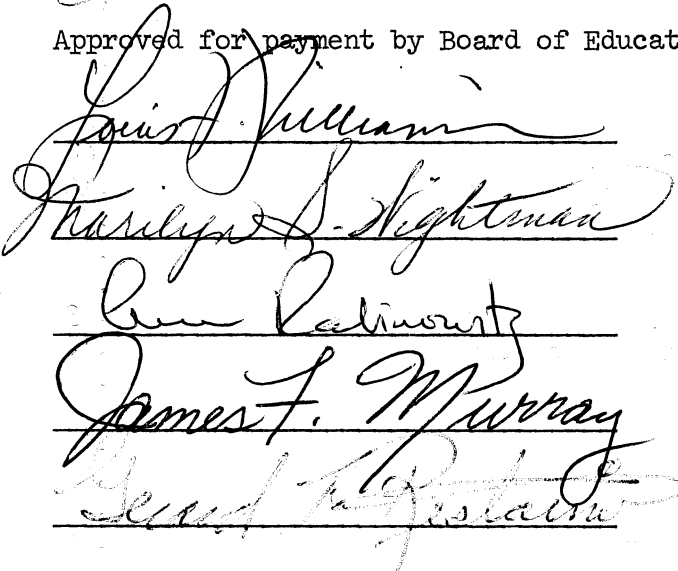 Approved for payment by Board of Educat
Louis J. Williams
Marilyn S. Wightman
Rabinowitz
James F. Murray